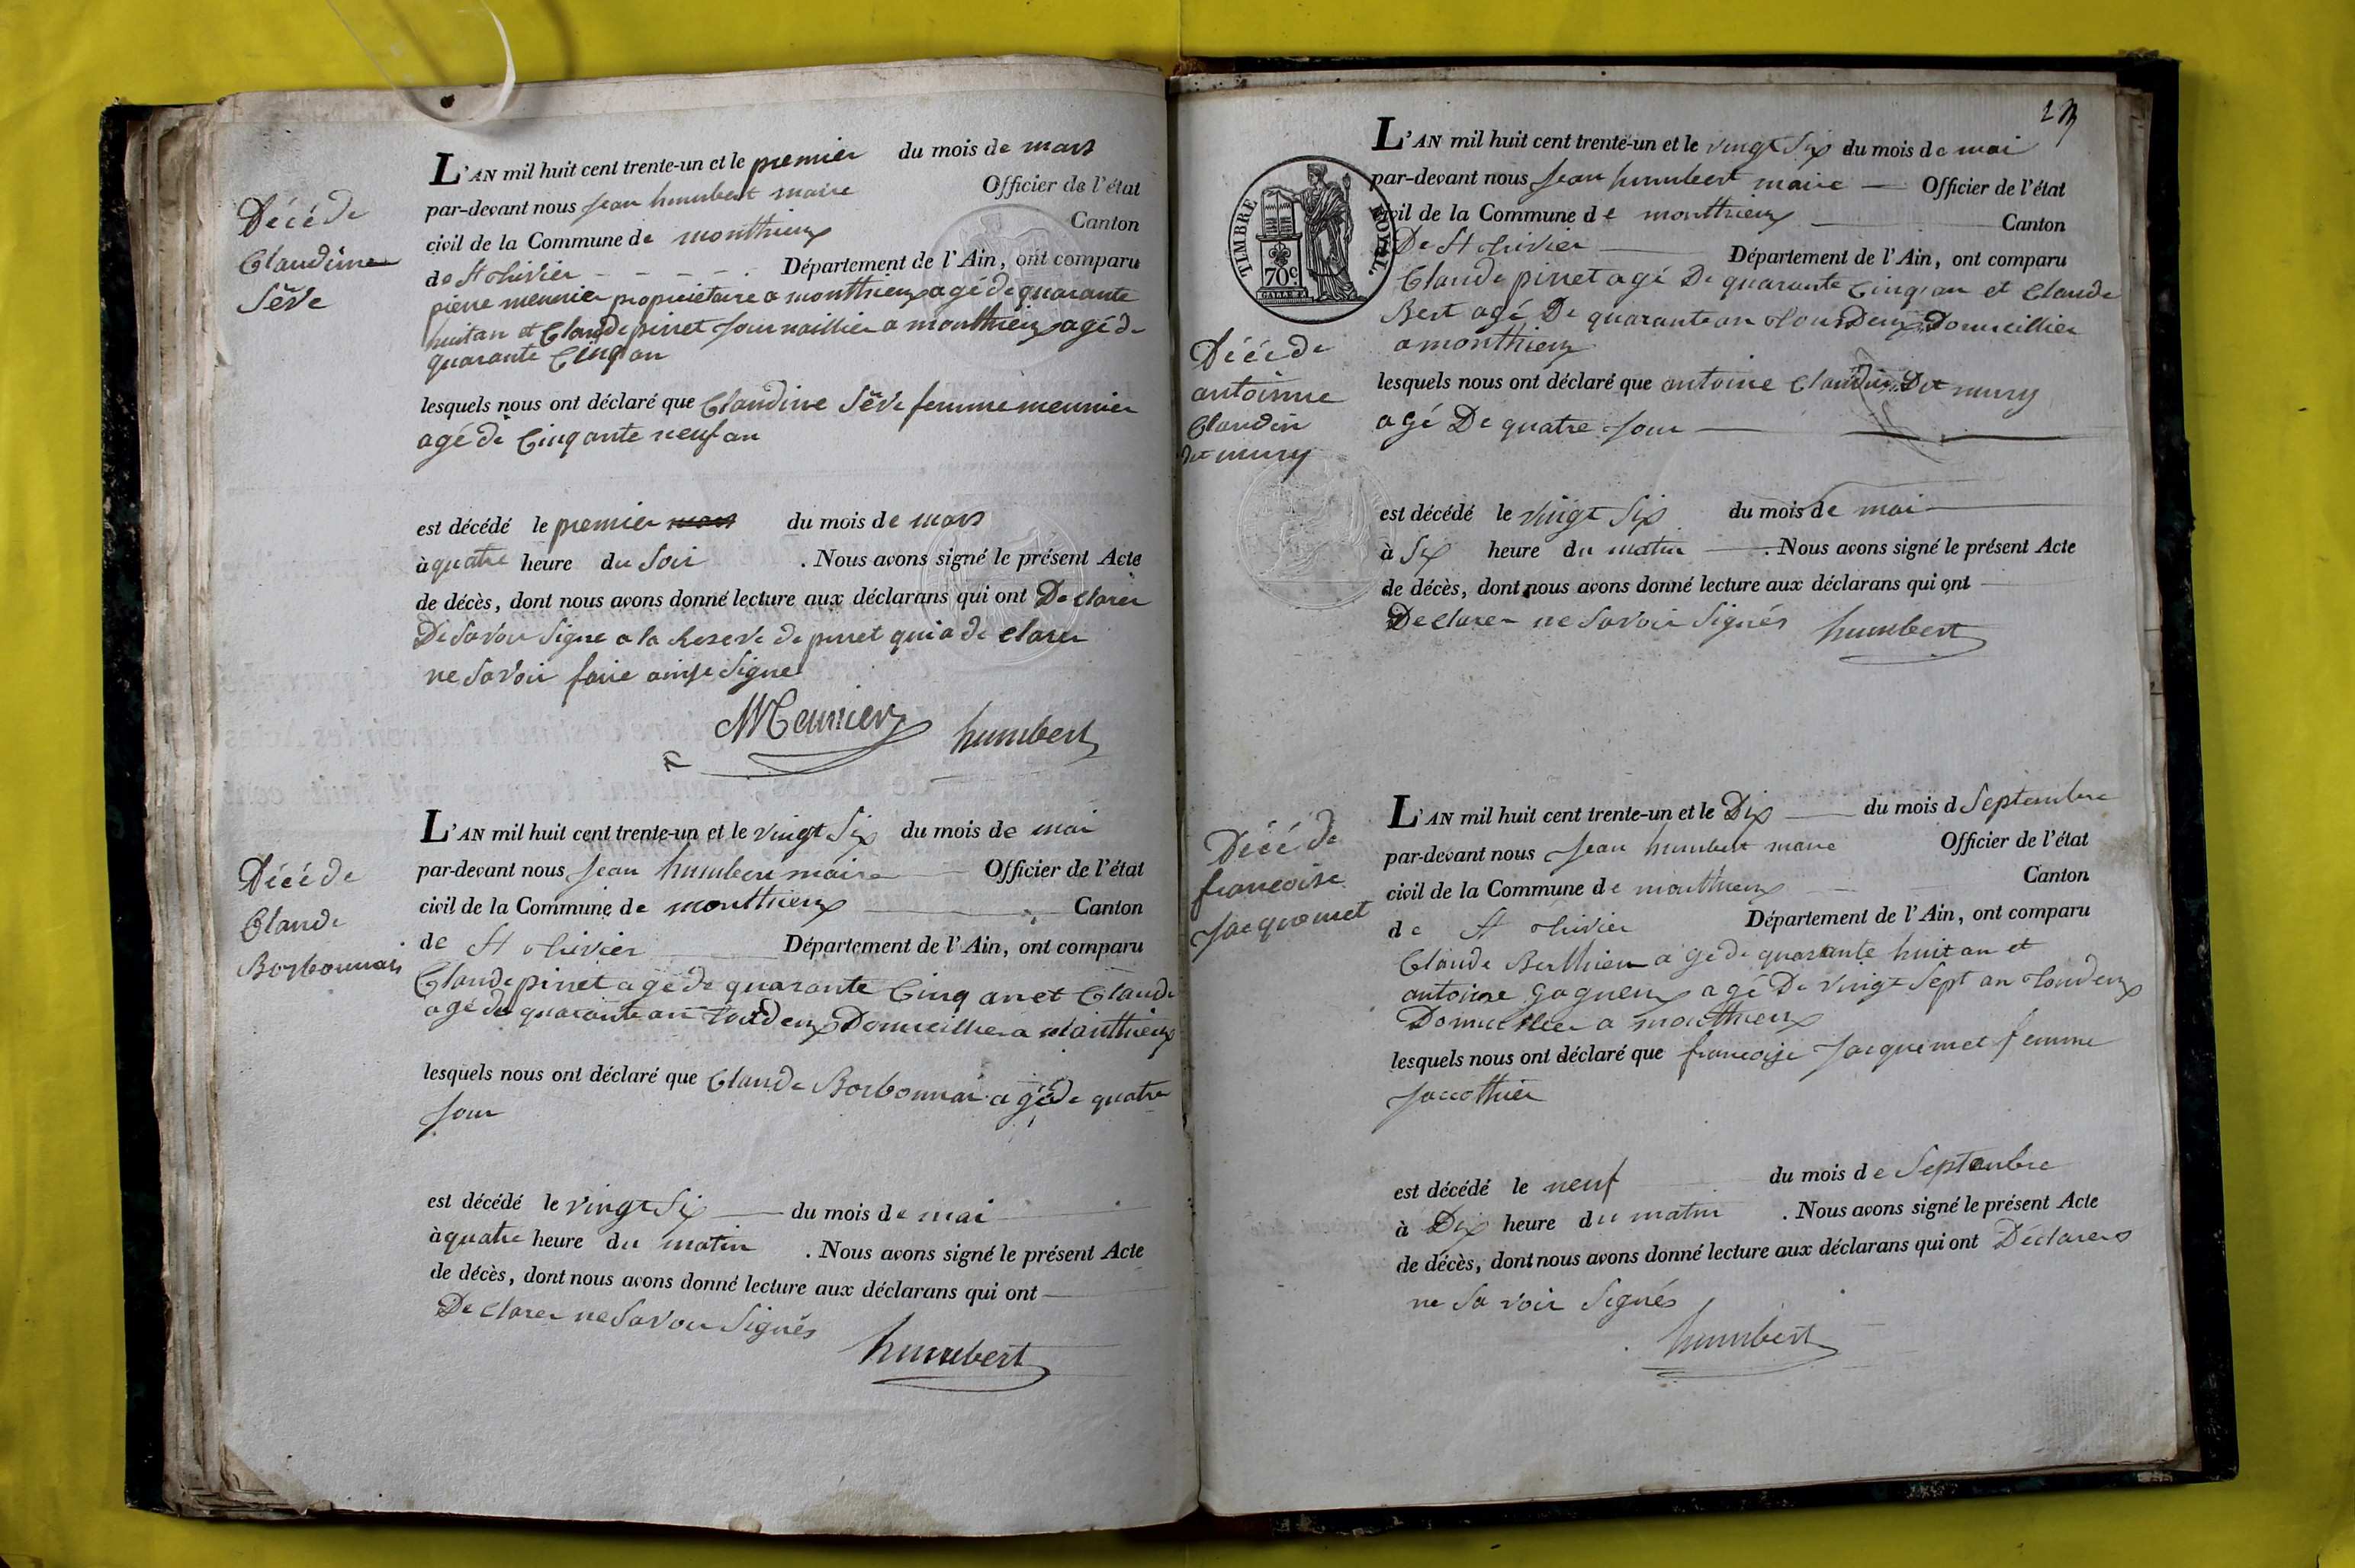 Décé de
Claudine
Sêve
L'AN mil huit cent trente-un et le premier du mois de mars
par-devant nous jean humbert maire Officier de l'état
civil de la Commune de monthieux Canton
de St trivier Département de l'Ain, ont comparu
pierre meunier propriétaire a monthieux agé de quarante
huit an et Claude pinet journaillier a monthieux agé de
quarante Cinq an
lesquels nous ont déclaré que Claudine Sêve femme meunier
agé de Cinqante neuf an
est décédé le premier mars du mois de mars
à quatre heure du Soir . Nous avons signé le présent Acte
de décès, dont nous avons donné lecture aux déclarans qui ont Declarer
De Savoir Signe a la Reserve de pinet qui a de clarer
ne Savoir faire ainsi Signe
Meunier humbert
Décé de
Claude
Borbonnais
L'AN mil huit cent trente-un et le vingt Six du mois de mai
par-devant nous jean humbert maire Officier de l'état
civil de la Commune de monthieux Canton
de St trivier Département de l'Ain, ont comparu
Claude pinet agé de quarante Cinq an et Claude
agé de quarante an tous deux Domicillier a Monthieux
lesquels nous ont déclaré que Claude Borbonnai agé de quatre
jour
est décédé le vingt Six du mois de mai
à quatre heure du matin . Nous avons signé le présent Acte
de décès, dont nous avons donné lecture aux déclarans qui ont
De clarer ne Savoir Signés
humbert
23
TIMBRE ROYAL.
70c
L'AN mil huit cent trente-un et le vingt Six du mois de mai
par-devant nous jean humbert maire Officier de l'état
civil de la Commune de monthieux Canton
De St trivier Département de l'Ain, ont comparu
Claude pinet agé De quarante Cinq an et Claude
Bert agé De quarante an tous Deux Domicillier
a monthieux
Décé de
antoinne
Claudin
dit mury
lesquels nous ont déclaré que antoine Claudin Dit mury
agé De quatre jour
est décédé le vingt Six du mois de mai
à Six heure du matin . Nous avons signé le présent Acte
de décès, dont nous avons donné lecture aux déclarans qui ont
De clarer ne Savoir Signés humbert
Décé de
francoise
jacquemet
L'AN mil huit cent trente-un et le Dix du mois d Septembre
par-devant nous jean humbert maire Officier de l'état
civil de la Commune de monthieux Canton
de St trivier Département de l'Ain, ont comparu
Claude Berthieu agé de quarante huit an et
antoine gagneux agé De vingt Sept an tous deux
Domicillier a monthieux
lesquels nous ont déclaré que francoise jacquemet femme
jaccothier
est décédé le neuf du mois de Septembre
à Dix heure du matin . Nous avons signé le présent Acte
de décès, dont nous avons donné lecture aux déclarans qui ont Déclarers
ne Sa voir Signés
humbert